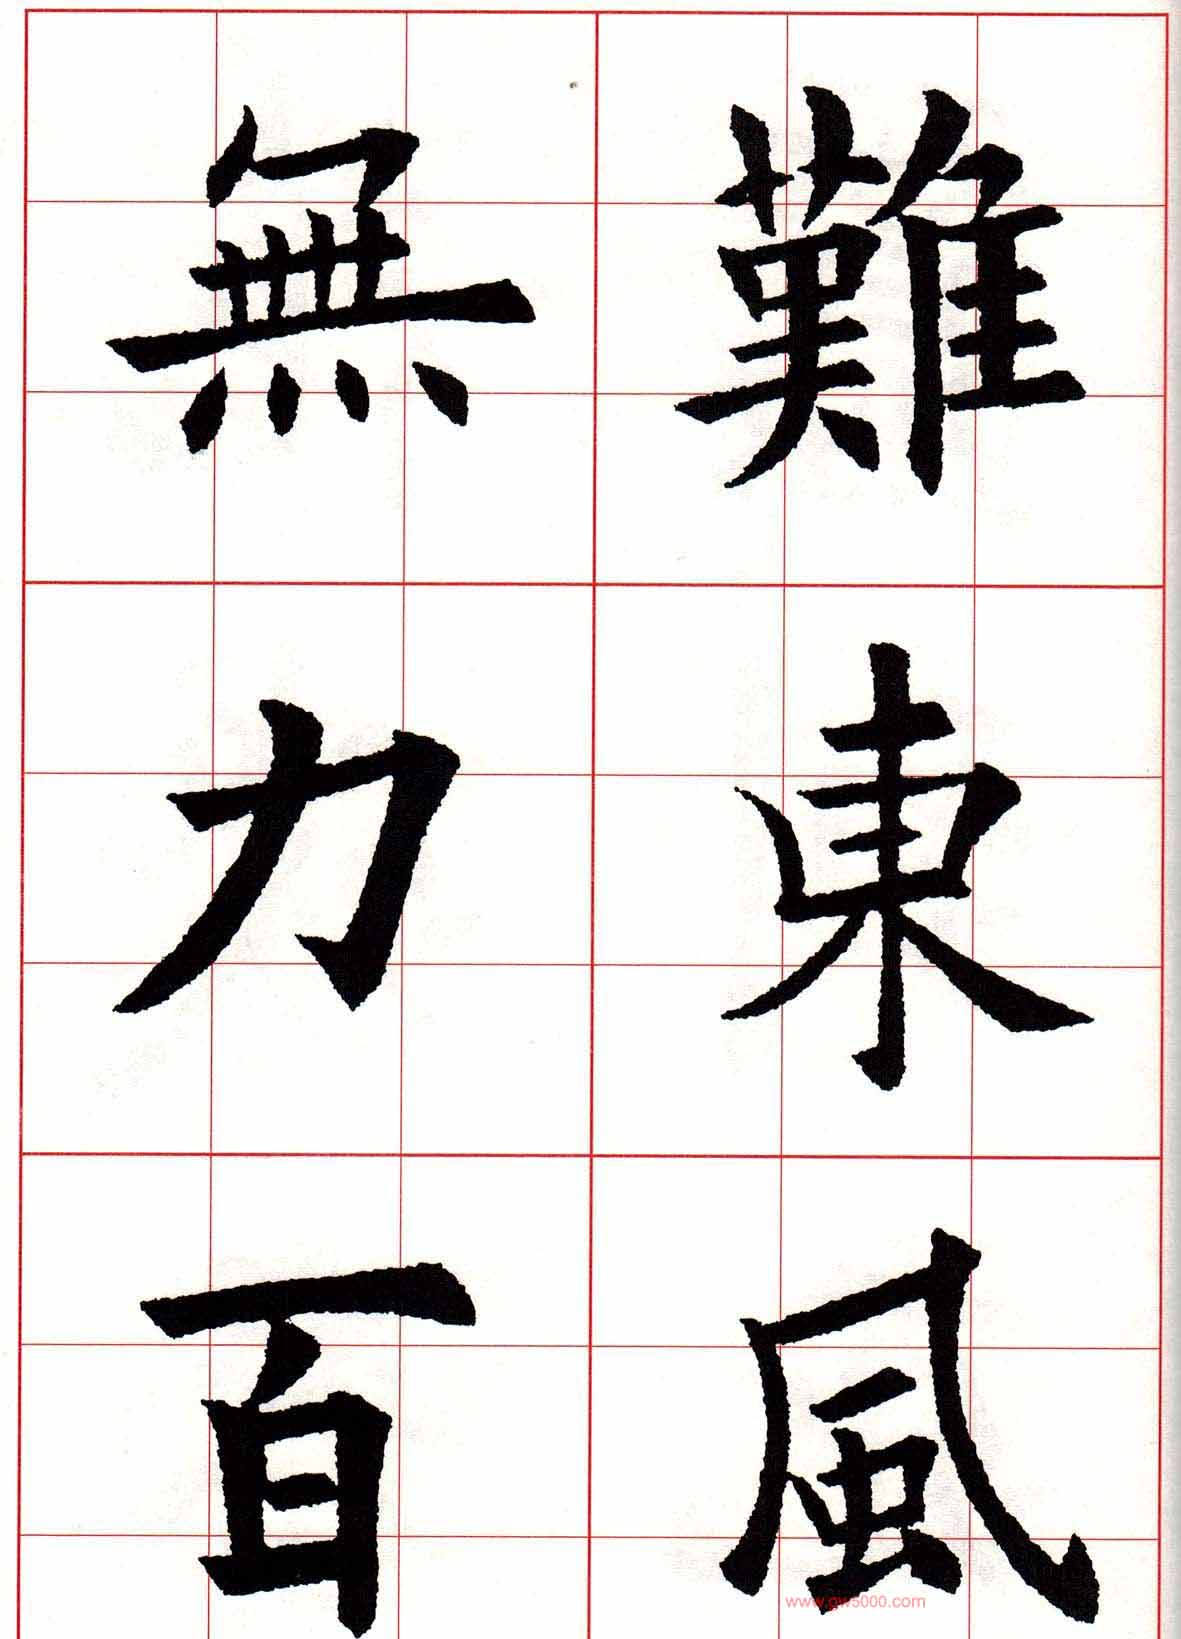 難東風
無力百
www.gw5000.com